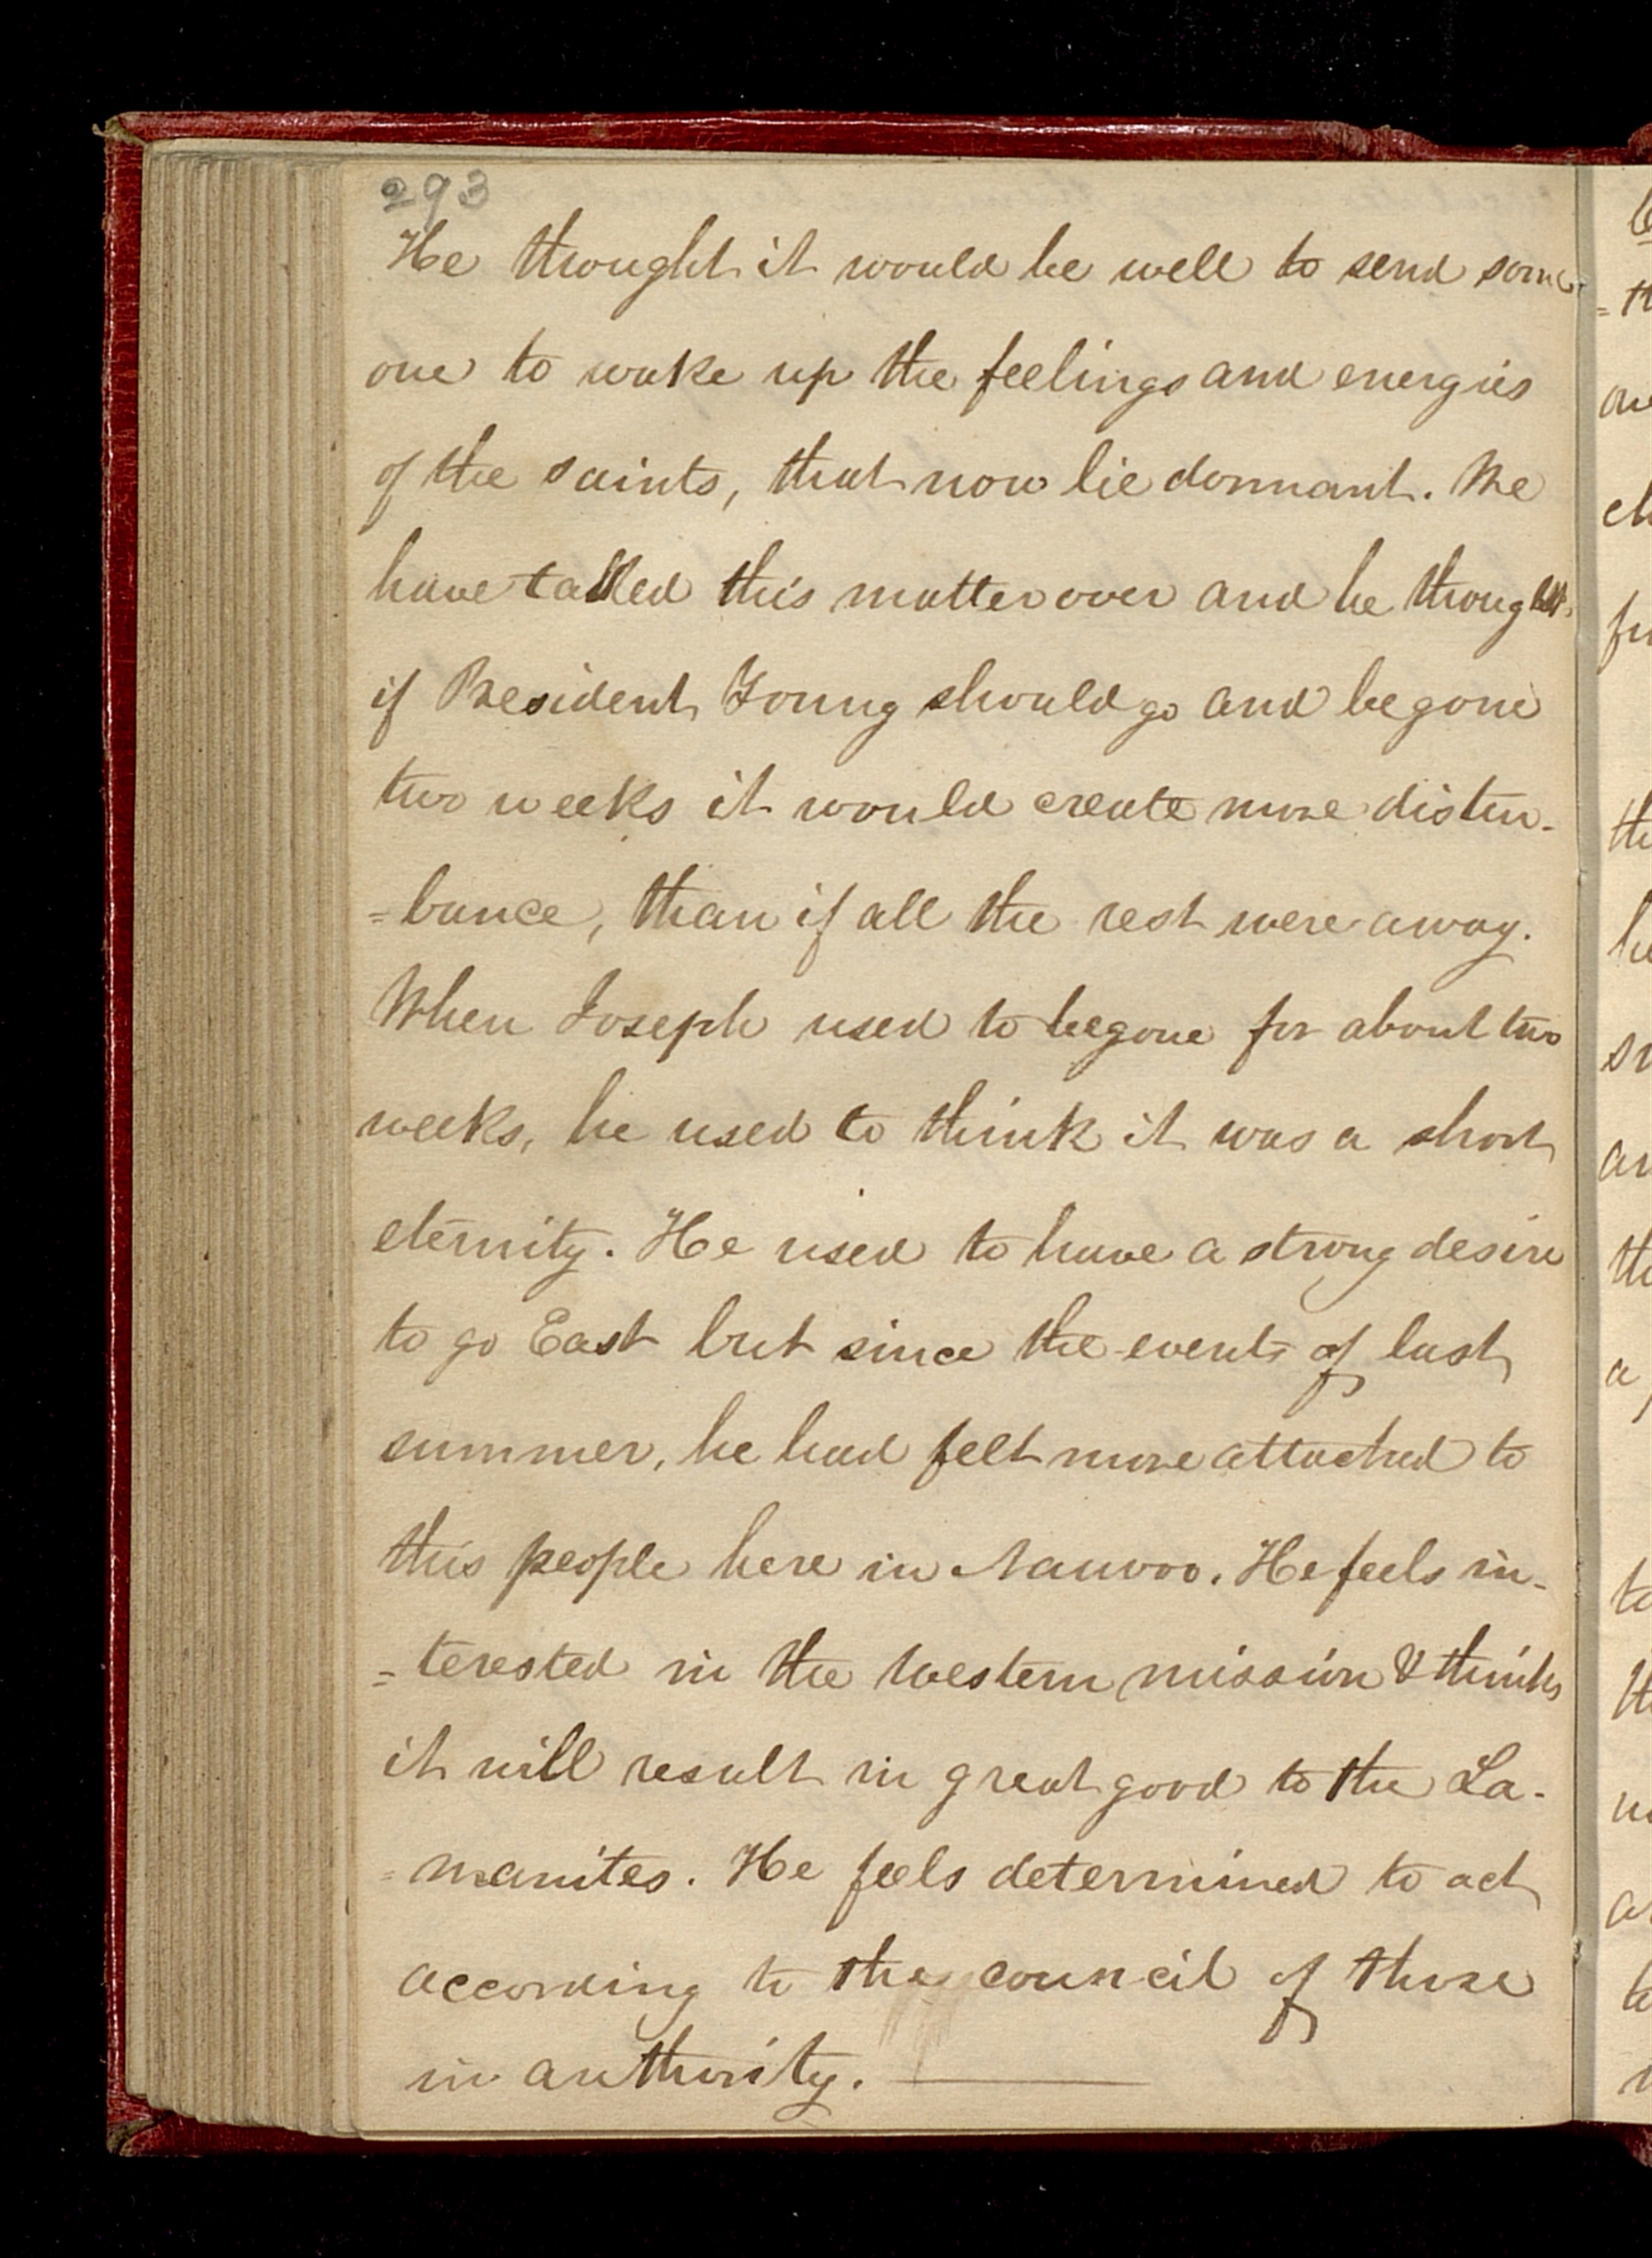 293
He thought it would be well to send some
one to wake up the feelings and energies
of the saints, that now lie dormant. We
have talked this matter over and he thought
if President Young should go and be gone
two weeks it would create more distur-
=bance, than if all the rest were away.
When Joseph used to be gone for about two
weeks, he used to think it was a short
eternity. He used to have a strong desire
to go East but since the events of last
summer, he had felt more attached to
this people here in Nauvoo. He feels in-
=terested in the Western mission & thinks
it will result in great good to the La-
=manites. He feels determined to act
according to the council of those
in authority.